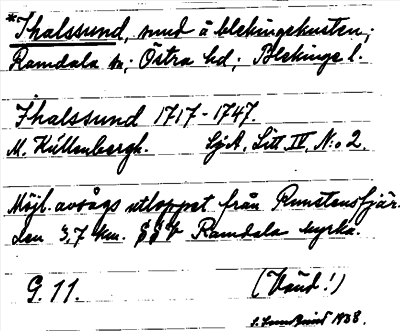 *Ihalssund, sund å blekingekusten;
Ramdala sn; Östra hd; Blekinge l.
Ihalssund 1717-1747.
M. Küllenbergh. SjA, Litt IV, N:o 2.
Möjl. avsågs utloppet från Runstensfjär-
den 3,7 km. SSV Ramdala kyrka.
G. 11. (Vänd!)
1938.